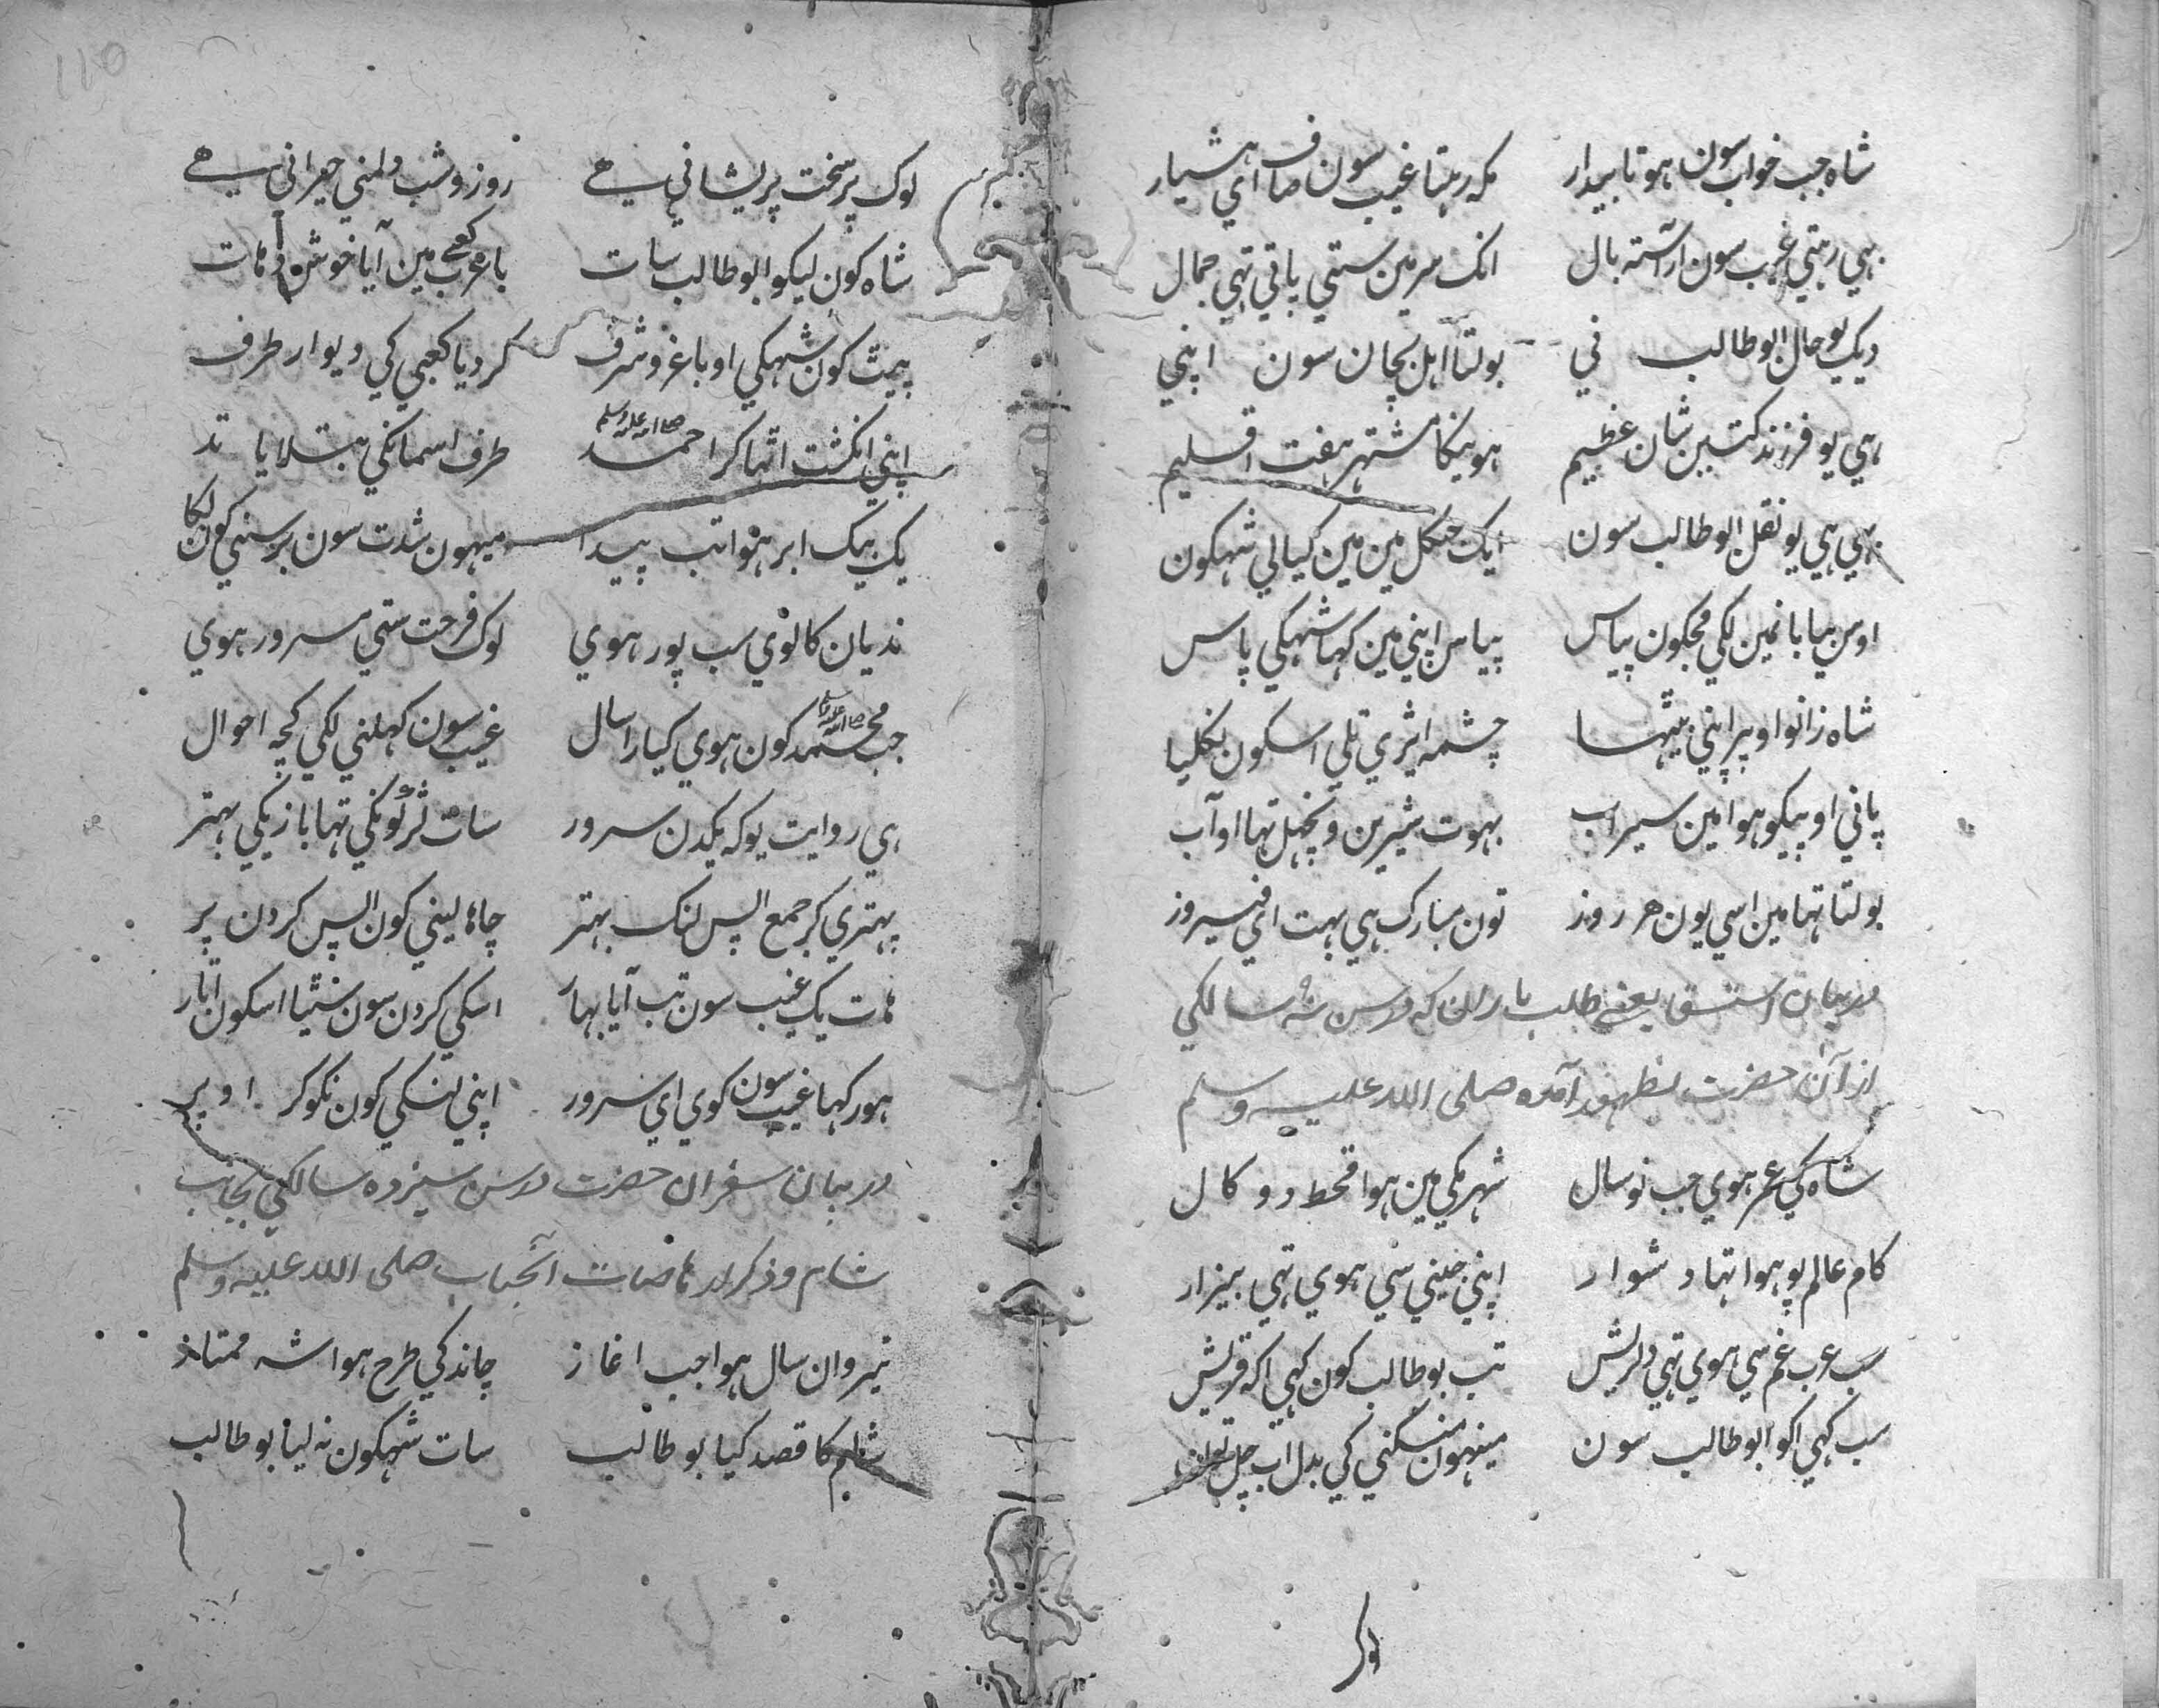 شاه جب خواب سون هوتا بیدار مکه رہتا غیب سون صاف ای هشیار
بہی رہتی غیب سون اراسته بال انک سرمین ستی باقی تہی جمال
دیک یو حال ابوطالب نی بولتا اہل پچان سون اپنی
ہی یو فرزند کتین شان عظیم ہوینکا مشتہر ہفت اقلیم
بہی ہی یو نقل ابوطالب سون ایک جنکل مین مین کیا لی شہکون
اوس بیابانمین لکی مجکون پیاس پیاس اپنی مین کہا شہکی پاس
شاه زانو اوپر اپنی بیٹہا چشمه ایڑی تلی اسکون نکلیا
پانی او پیکو ہوا مین سیراب بہوت شیرین و نچہل تہا او آب
بولتا تہا مین اسی یون هر روز تون مبارک ہی بہت ای فیروز
در بیان استسقا یعنی طلب باران که در سن نه سالکی
از آن حضرت بظهور آمده صلی الله علیه وسلم
شاه کی عمر ہوی جب نو سال شہر مکی مین ہوا قحط و و کال
کام عالم پو ہوا تہا دشوار اپنی جینی سی ہوی تہی بیزار
سب عرب غم سی ہوی تہی دلریش تب بوطالب کون کہی اکه قریش
سب کہی اکو ابوطالب سون مینہون منکنی کی بدل اب چل تون
لوک
لوک پر سخت پریشانی هے روز و شب دلمنی حیرانی هے
شاه کون لیکو ابوطالب سات با عرب کعبے مین آیا خوش ذات
پیٹ کون شہکی او با عز و شرف کر دیا کعبی کی دیوار طرف
اپنی انکشت اتہا کر احمد صلی الله علیه وسلم طرف اسمانکی بتلایا تد
یک بیک ابر ہوا تب پیدا مینہون شدت سون برسنی کون لکا
ندیان کالوی سب پور ہوی لوک فرحت ستی مسرور ہوی
جب محمد صلی الله علیه وسلم کون ہوی کیارا سال غیب سون کہلنی لکی کچه احوال
ہی روایت یو که یکدن سرور سات لڑکونکی تہا بازیکی بہتر
پہتری کر جمع اپس لنک بہتر چاہا لینی کون اپس کردن پر
ہات یک غیب سون تب آیا بہار اسکی کردن سون سٹیا اسکون اتار
ہور کہا غیب سون کوی ای سرور اپنی لنکی کون نکو کر اوپر
در بیان سفر ان حضرت در سن سیزده سالکی بجانب
شام و ذکر ارهاصات آنجناب صلی الله علیه وسلم
تیروان سال ہوا جب اغاز چاند کی طرح ہوا شه ممتاز
شام کا قصد کیا بوطالب سات شہکون نه لیا بوطالب